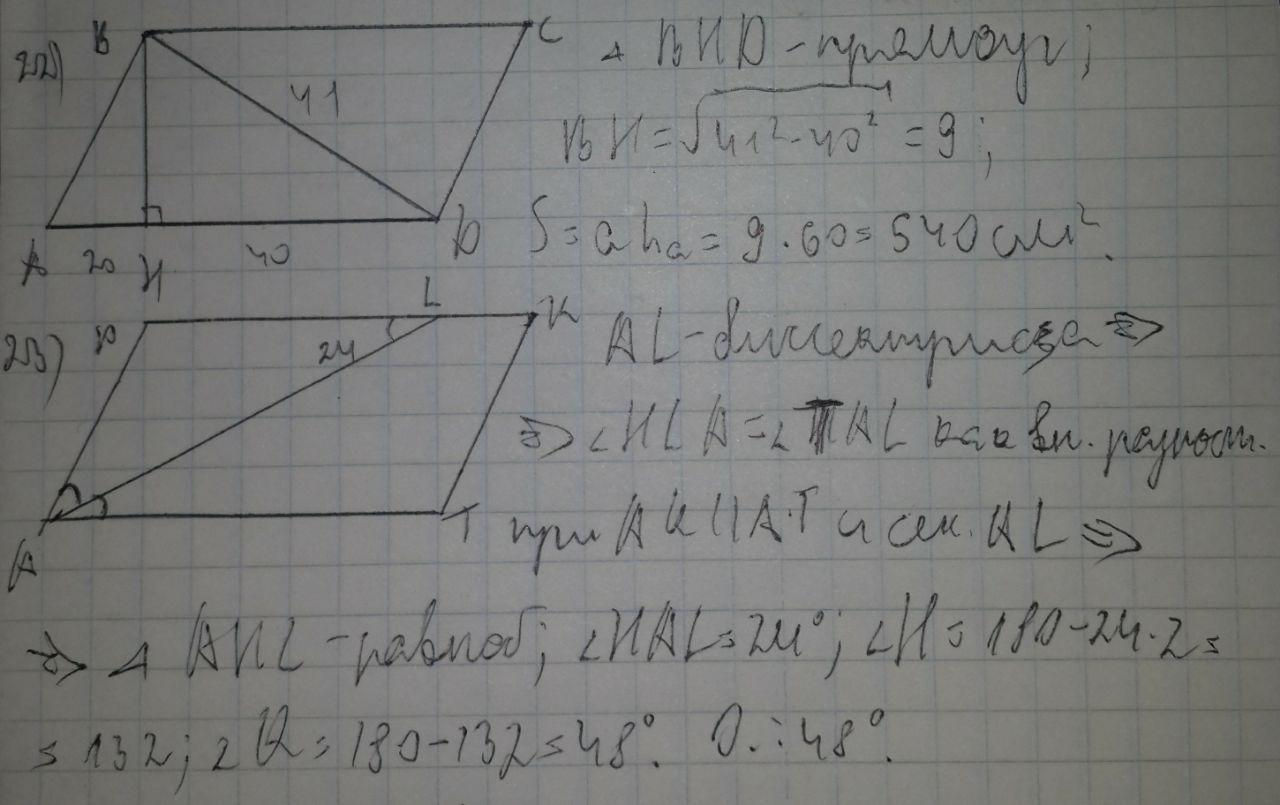 22) B C
41
A 20 H 40 D
△ BHD - прямоуг;
BH = √41²-40² = 9;
S = a hₐ = 9·60 = 540 см².
23) H L K
24
A T
AL - биссектриса ⇒
⇒ ∠HLA = ∠TAL как вн. разност.
при HK || AT и сек. AL ⇒
⇒ △ AHL - равноб; ∠HAL = 24°; ∠H = 180-24·2 =
= 132; ∠K = 180-132 = 48°. О.: 48°.